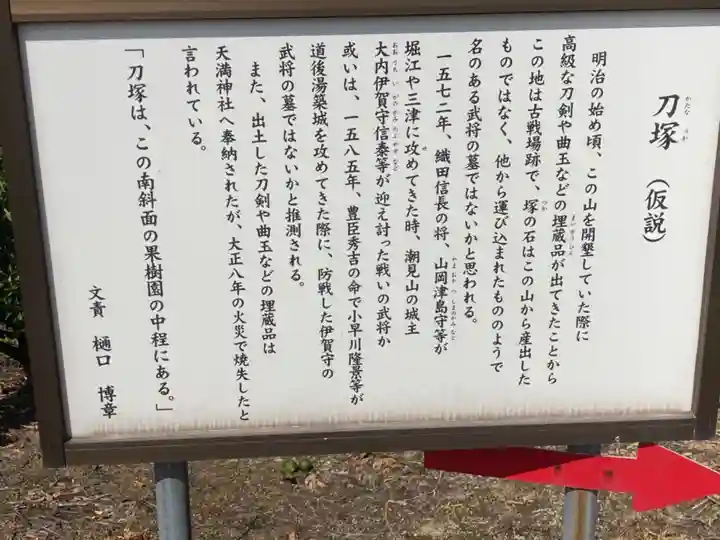 刀塚（仮説）
明治の始め頃、この山を開墾していた際に
高級な刀剣や曲玉などの埋蔵品が出てきたことから
この地は古戦場跡で、塚の石はこの山から産出した
ものではなく、他から運び込まれたもののようで
名のある武将の墓ではないかと思われる。
一五七二年、織田信長の将、山岡津島守等が
堀江や三津に攻めてきた時、潮見山の城主
大内伊賀守信泰等が迎え討った戦いの武将か
或いは、一五八五年、豊臣秀吉の命で小早川隆景等が
道後湯築城を攻めてきた際に、防戦した伊賀守の
武将の墓ではないかと推測される。
また、出土した刀剣や曲玉などの埋蔵品は
天満神社へ奉納されたが、大正八年の火災で焼失したと
言われている。
「刀塚は、この南斜面の果樹園の中程にある。」
文責　樋口　博章